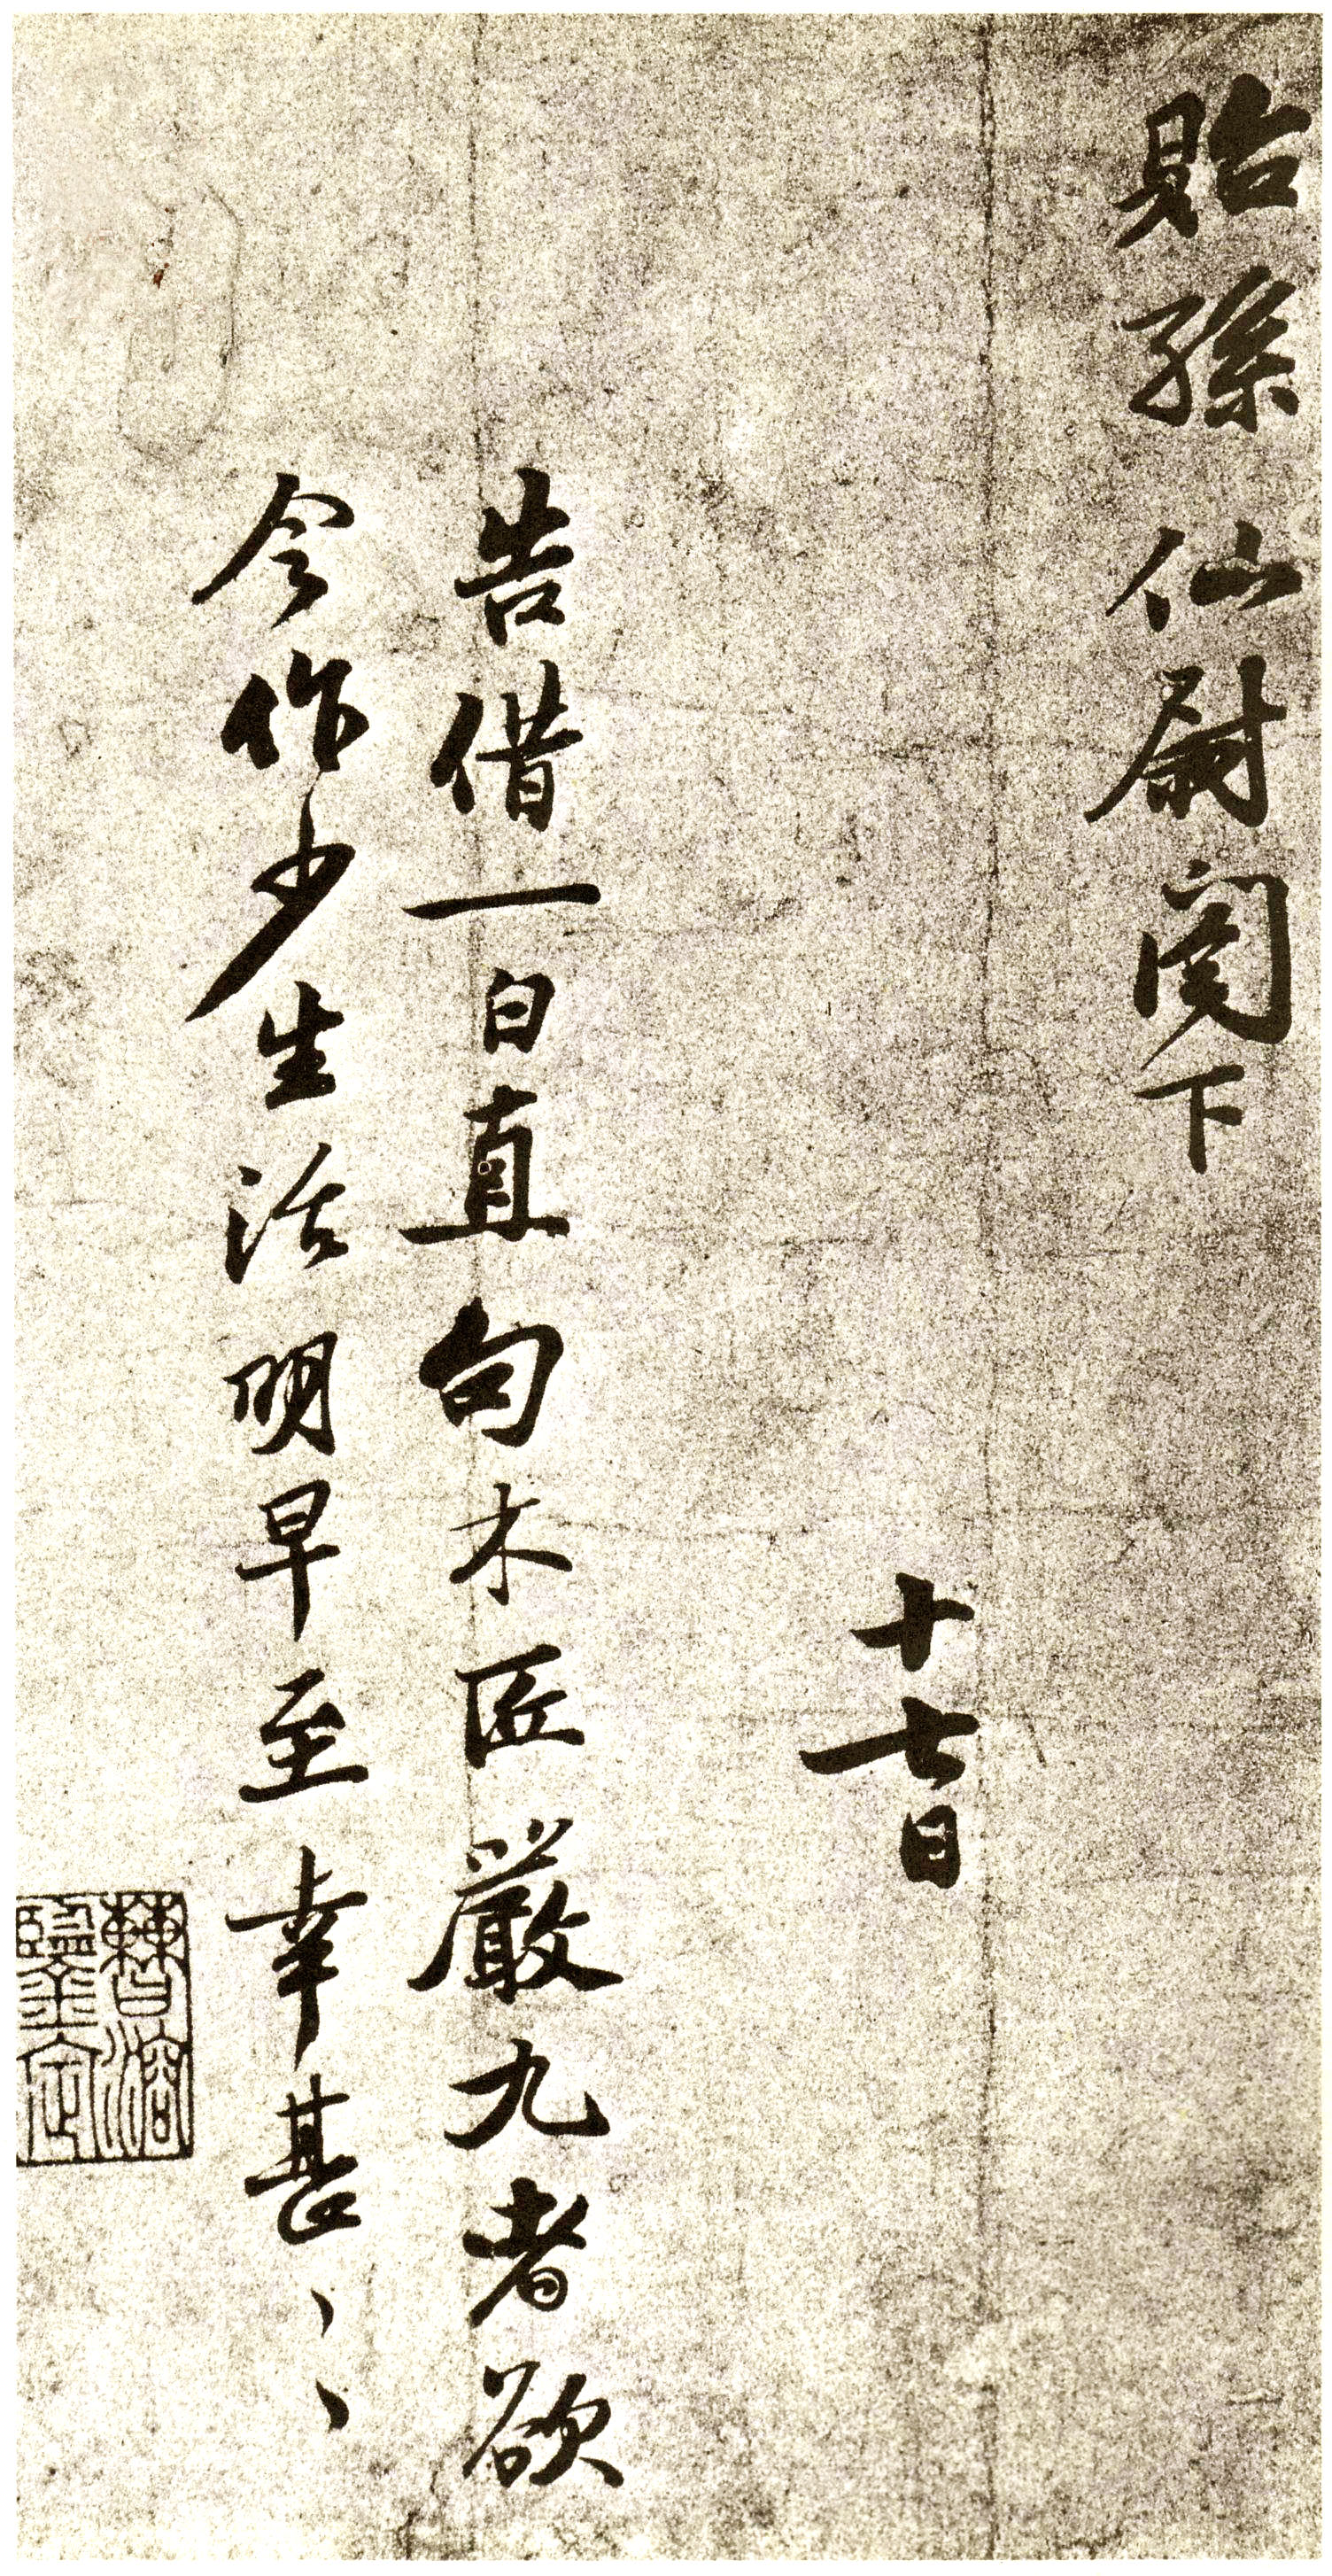 貽孫仙尉閣下
十七日
告借一白直句木匠嚴九者欲
令作少生活明早至幸甚〻
曹溶
鑒定